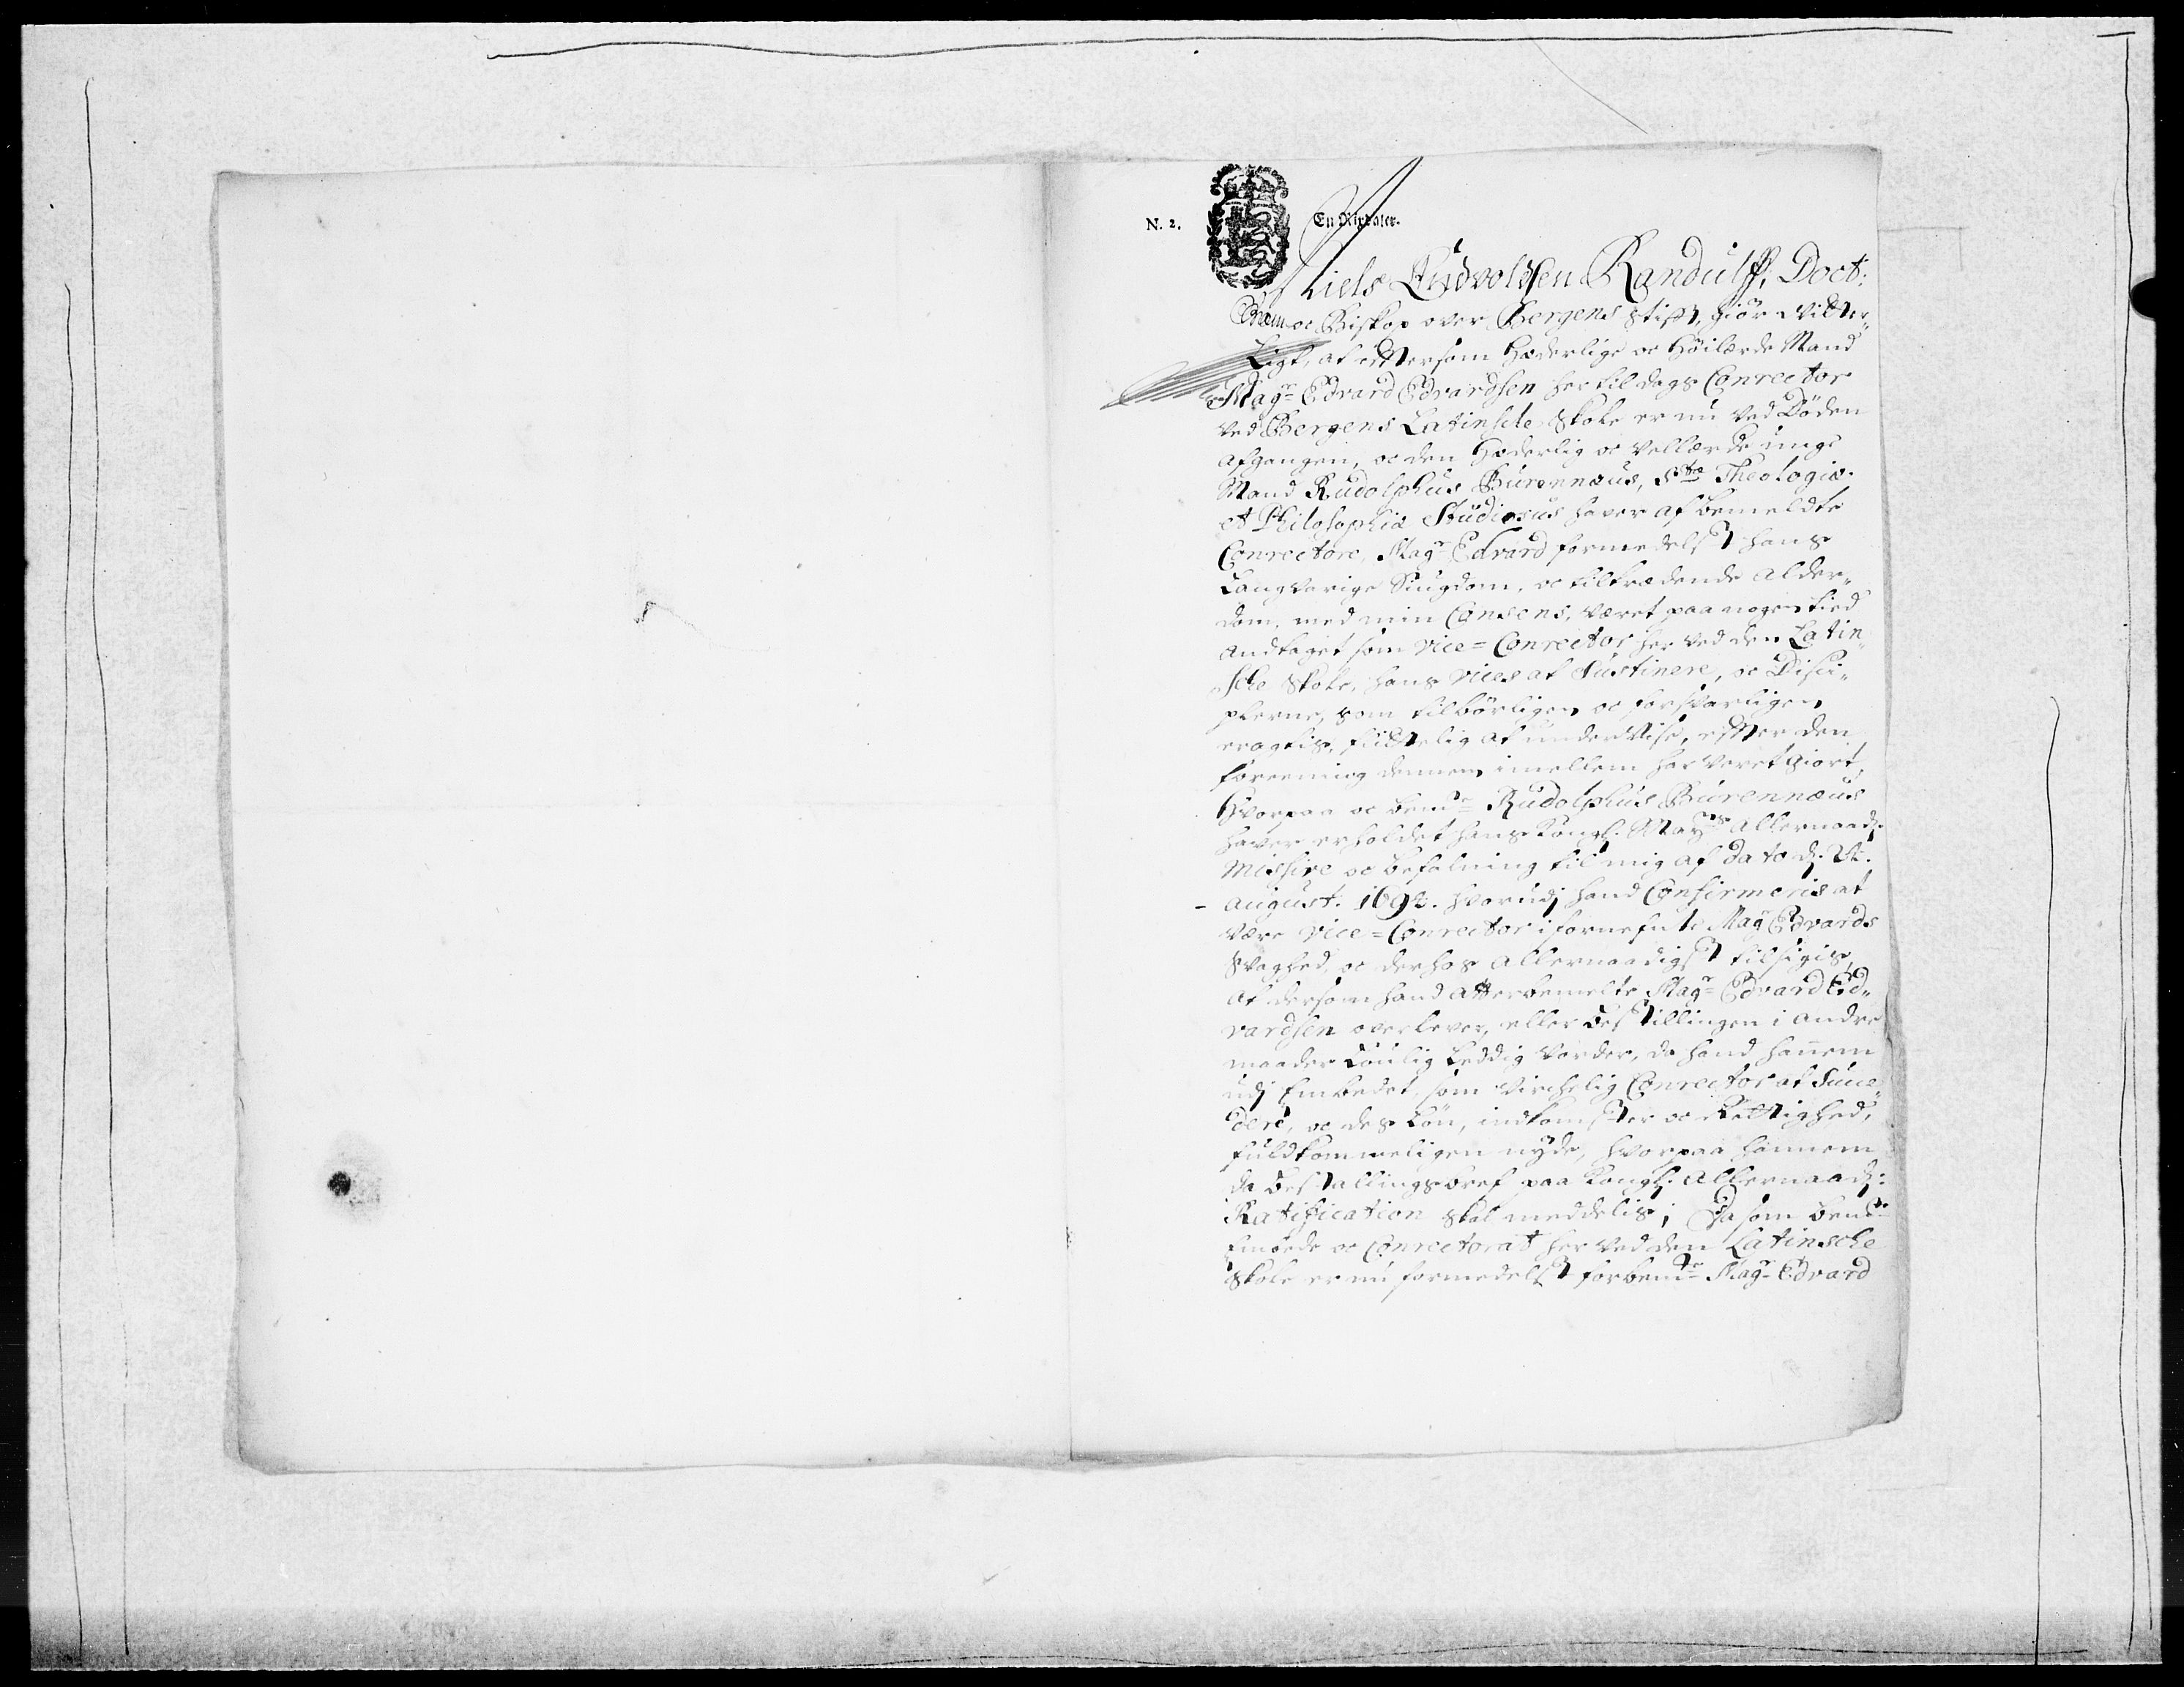 N. 2.
En Rixdaler.
Niels Endvoldsen Randulff, Doct:
oc Biskop over Bergens stifft, giör vitter„
Ligt, at efftersom Hæderlige oc Höilærde Mand
Magr Edvard Edvardsen her til dags Conrector
ved Bergens Latinsche Skole er nu ved Döden
afgangen, oc den Hæderlig oc vellærde unge
Mand Rudolphus Burennæus, Stæ Theologiæ
et Philosophiæ Studiosus haver af bemeldte
Conrectore, Magr Edvard formedelst hans
Langvarige Siugdom, oc tiltrædende Alder„
dom, med min Consens, været paa nogen tied
andtaget som vice=Conrector her ved den Latin„
sche Skole, hans vices at Sustinere, oc Disci„
plerne, som tilbörligen oc forsvarligen
eragtis, flittelig at undervise, effter den
foreening dennem imellem har veret giort,
Hvorpaa oc bemte Rudolphus Burennæus
haver erholdet hans Kongl. Mayts Allernaadz
Missive oc befalning til mig af Dato d.
August. 1692. hvorudj hand Confirmeris at
være vice=Conrector i forneffnte Magr Edvards
Svaghed, oc derhos Allernaadigst tilsigis,
at dersom hand atterbemelte Magr Edvard Ed„
vardsen overlever, eller bestillingen i andre
maader Loulig leddig vorder, da hand hannem
udj Embedet som virchelig Conrector at Succe„
dere, oc des Lön, indkomster oc Rettighed,
fuldkommeligen nyde, hvorpaa hannem
da bestallingsbref paa Kongl. Allernaadz:
Ratification skal meddelis; Da som bemte
Embede oc Conrectorat her ved den Latinsche
Skole er nu formedelst forbemte Magr Edvard